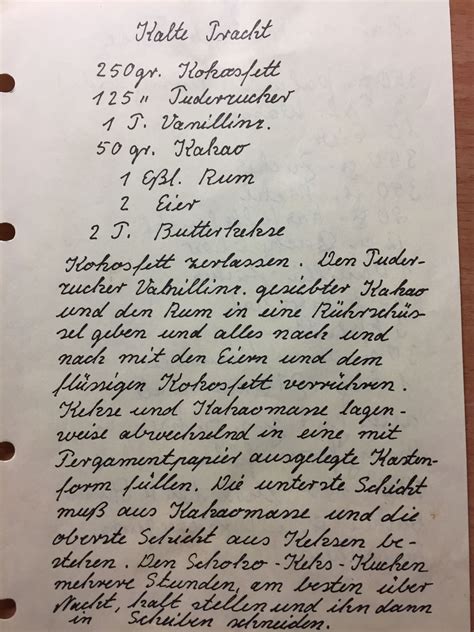 Kalte Pracht
250 gr. Kokosfett
125 " Puderzucker
1 P. Vanillinz.
50 gr. Kakao
1 Eßl. Rum
2 Eier
2 P. Butterkekse
Kokosfett zerlassen. Den Puder-
zucker Vanillinz. gesiebter Kakao
und den Rum in eine Rührschüs-
sel geben und alles nach und
nach mit den Eiern und dem
flüssigen Kokosfett verrühren.
Kekse und Kakaomasse lagen-
weise abwechselnd in eine mit
Pergamentpapier ausgelegte Kasten-
form füllen. Die unterste Schicht
muß aus Kakaomasse und die
oberste Schicht aus Keksen be-
stehen. Den Schoko-Keks-Kuchen
mehrere Stunden, am besten über
Nacht, kalt stellen und ihn dann
in Scheiben schneiden.